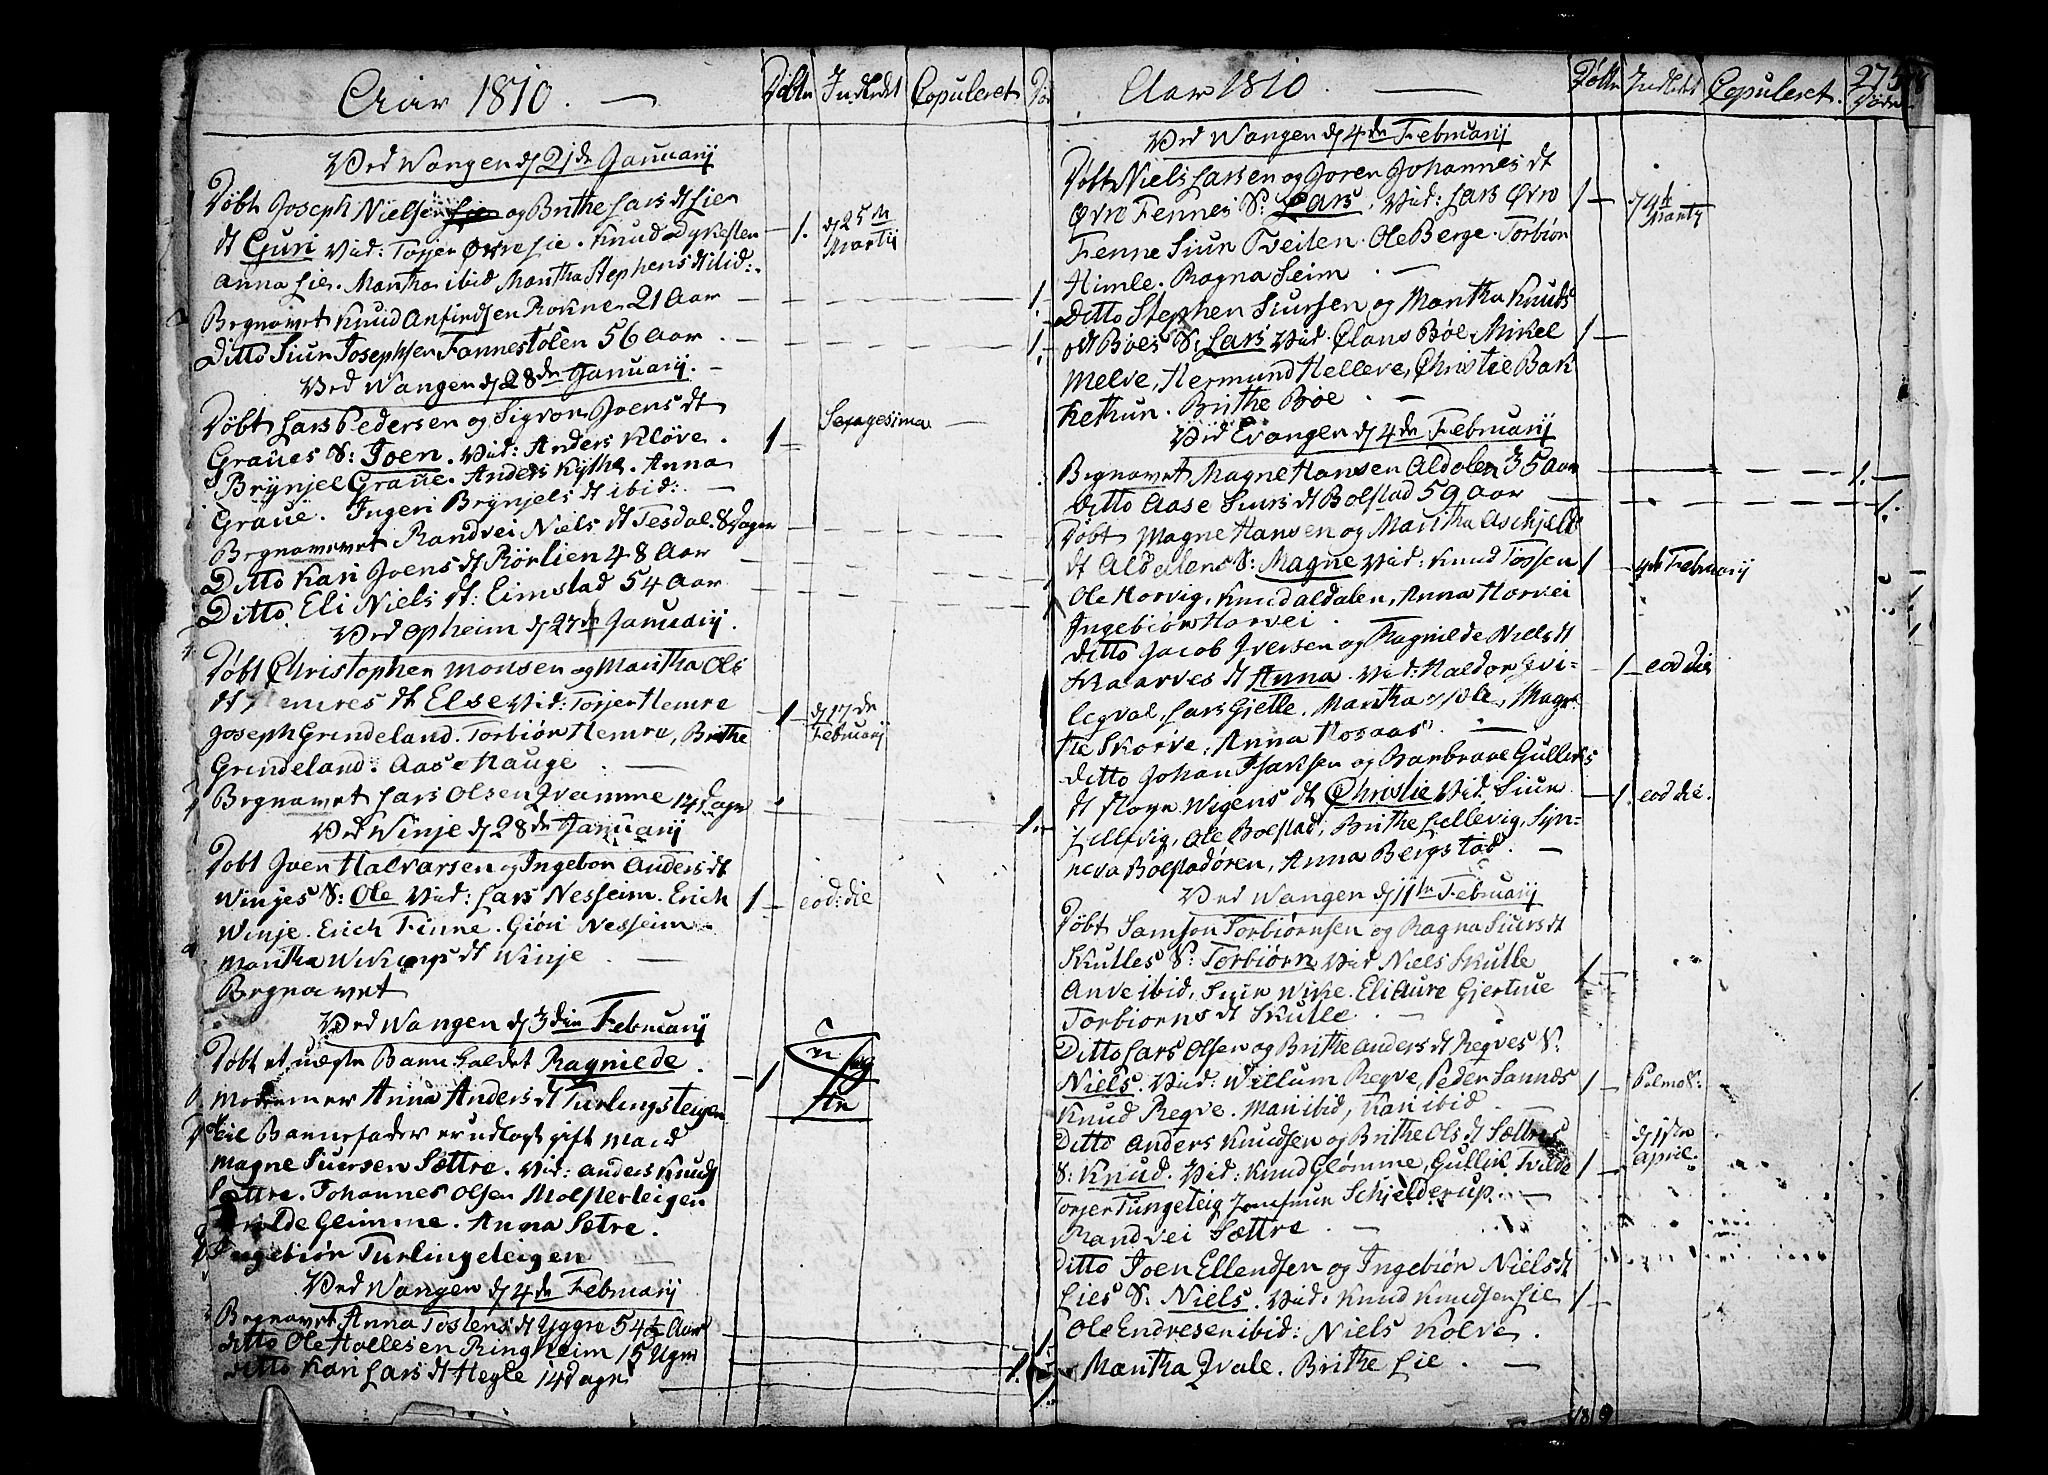 Aar 1810. —
Døbte Indledt Copuleret Dø
Ved Wangen d 21de Januarij
Døbt Joseph Nielsen og Brithe Lars dt Lie
dt Guri Vid: Torjer Øvre Lie. Knud Dykesten 1. d 25de Martij
Anna Lie. Martha ibid Martha Stephens dt ibid:
Begravet Knud Anfindsen Rokne 21 Aar 1.
Ditto Siur Josephsen Fannestølen 56 Aar. 1.
Ved Wangen d 28de Januarij.
Døbt Lars Pedersen og Sigvor Joens dt Sexagesima
Graues S: Joen. Vid: Anders Kløve. 1
Brynjel Graue. Anders Kythe. Anna
Graue. Ingeri Brynjels dt ibid:
Begravet Randvei Niels dt Tesdal. 8 Dager
Ditto Kari Joens dt Rørlien 48 Aar
Ditto. Eli Niels dt: Eimstad 54 Aar
Ved Opheim d 27de Januarij.
Døbt Christopher Monsen og Martha Ols
dt Hemres dt Else Vid: Torjer Hemre 1 d 17de Februarij
Joseph Grindeland. Torbiør Hemre, Brithe
Grindeland. Aase Hauge.
Begravet Lars Olsen Qvamme 14 Dager 1.
Ved Winje d 28de Januarij
Døbt Joen Halvarsen og Ingebor Anders dt
Winjes S: Ole Vid: Lars Nesheim. Erich 1 eod: die
Winje. Erich Finne. Giøri Nesheim.
Martha Wikings dt Winje.
Begravet
Ved Wangen d 3die Februarij
Døbt et uægte Barn kaldet Ragnilde. 1
Moderen er Anna Anders dt Turlingsteigen
til Barnefader er udlagt gift Mand
Magne Siursen Sættre. Vid: Anders Knuds
Sættre. Johannes Olsen Molsterteigen
Glimme. Anna Sætre.
Ingebiør Turlingeteigen
Ved Wangen d 4de Februarij
Begravet Anna Tostens dt Yggre 54½ Aar
ditto Ole Hollesen Ringheim 15 Uger
ditto Kari Lars dt Hegle 14 dager
Aar 1810. Døbte Indledt Copuleret. Døde
275
Ved Wangen d 4de Februarij
Døbt Niels Larsen og Joren Johannes dt
Øvre Fennes S: Lars. Vid: Lars Øvre 1 d 4de Martij
Fenne Siur Tveiten. Ole Berge. Torbiør
Himle. Ragna Seim.
Ditto Stephen Siursen og Martha Knuds
dt Bøes S: Lars Vid. Claus Bøe Mikel 1
Melve, Hermund Helleve, Christie Bak
kethun. Brithe Bøe.
Ved Evangen d 4de Februarij
Begravet Magne Hansen Aldalen 35 Aar 1.
Ditto Aase Siurs dt Bolstad 59 Aar 1.
Døbt Magne Hansen og Martha Aschjels
dt Aldalens S: Magne Vid: Knud Tossen 1 4de Februarij
Ole Horvig, Knud Aldalen, Anna Horvei
Ingebiør Horvei.
Ditto Jacob Iversen og Ragnilde Niels dt
Skaarves dt Anna. Vid: Haldor Evi= 1 eod die
legval, Lars Gjelle. Martha ibid, Magre
the Skorve, Anna Hosaas.
Ditto Johan Isaksen og Barbraae Gulleiks
dt Store Wigens dt Christie Vid. Siur 1. eod die.
Lillevig, Ole Bolstad, Brithe Lillevig, Syn=
neva Bolstadøren, Anna Bergstad.
Ved Wangen d 11te Februarij
Døbt Samson Torbiørnsen og Ragna Siurs dt
Skulles S: Torbiørn Vid Niels Skulle 1
Anve ibid, Siur Wike. Eli Aure Gjertrue
Torbiorns dt Skulle.
Ditto Lars Olsen og Brithe Anders dt Reqves S:
Niels. Vid: Willum Reqve, Peder Sannæs 1 PalmeS:
Knud Reqve. Mari ibid, Kari ibid
Ditto Anders Knudsen og Brithe Ols dt Sættres d 1ste
S: Knud. Vid: Knud Glømme, Gullik Tvilde 1 April.
Torjer Tungeteig Jomfruen Schjelderup.
Randvei Sættre
Ditto Joen Ellendsen og Ingebiør Niels dt
Lies S: Niels. Vid: Knud Knudsen Lie 1
Ole Endresen ibid: Niels Kolve.
Martha Qvale. Brithe Lie.
18 9